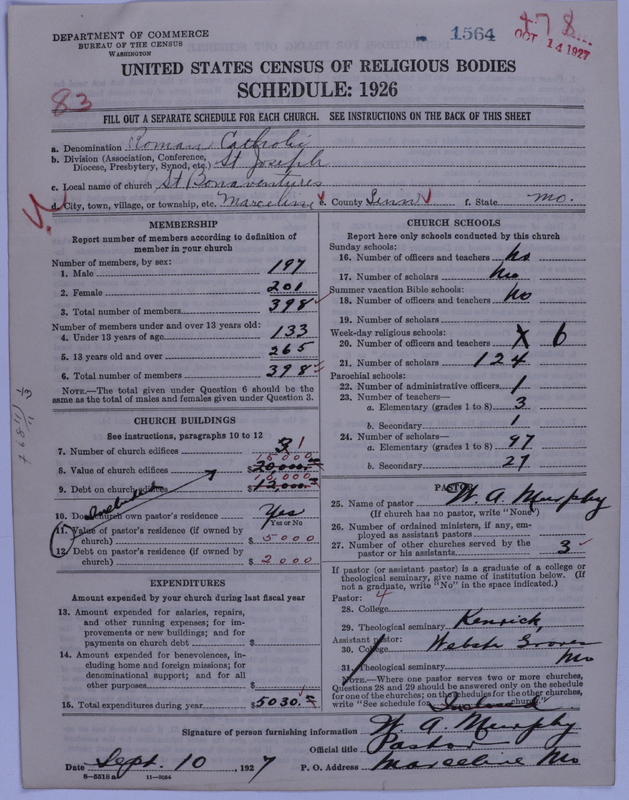 DEPARTMENT OF COMMERCE
BUREAU OF THE CENSUS
WASHINGTON
1564
478
OCT 14 1927
83
UNITED STATES CENSUS OF RELIGIOUS BODIES
SCHEDULE: 1926
FILL OUT A SEPARATE SCHEDULE FOR EACH CHURCH. SEE INSTRUCTIONS ON THE BACK OF THIS SHEET
a. Denomination Roman Catholic
b. Division (Association, Conference, Diocese, Presbytery, Synod, etc.) St Joseph
c. Local name of church St Bonaventures
d. City, town, village, or township, etc. Marceline e. County Linn f. State Mo.
MEMBERSHIP
Report number of members according to definition of member in your church
Number of members, by sex:
1. Male 197
2. Female 201
3. Total number of members 398
Number of members under and over 13 years old:
4. Under 13 years of age 133
5. 13 years old and over 265
6. Total number of members 398
NOTE.—The total given under Question 6 should be the same as the total of males and females given under Question 3.
CHURCH BUILDINGS
See instructions, paragraphs 10 to 12
7. Number of church edifices 1
8. Value of church edifices $ 20000.= 15000
9. Debt on church edifices $ 12,000.= 10000
Included
10. Does church own pastor's residence Yes
Yes or No
11. Value of pastor's residence (if owned by church) $ 5000
12. Debt on pastor's residence (if owned by church) $ 2000
EXPENDITURES
Amount expended by your church during last fiscal year
13. Amount expended for salaries, repairs, and other running expenses; for improvements or new buildings; and for payments on church debt $
14. Amount expended for benevolences, including home and foreign missions; for denominational support; and for all other purposes $
15. Total expenditures during year $ 5030.=
CHURCH SCHOOLS
Report here only schools conducted by this church
Sunday schools:
16. Number of officers and teachers No
17. Number of scholars No
Summer vacation Bible schools:
18. Number of officers and teachers No
19. Number of scholars
Week-day religious schools:
20. Number of officers and teachers X 6
21. Number of scholars 124
Parochial schools:
22. Number of administrative officers 1
23. Number of teachers—
a. Elementary (grades 1 to 8) 3
b. Secondary 1
24. Number of scholars—
a. Elementary (grades 1 to 8) 97
b. Secondary 27
PASTOR
25. Name of pastor W. A. Murphy
(If church has no pastor, write "None")
26. Number of ordained ministers, if any, employed as assistant pastors
27. Number of other churches served by the pastor or his assistants 3
If pastor (or assistant pastor) is a graduate of a college or theological seminary, give name of institution below. (If not a graduate, write "No" in the space indicated.)
Pastor: 4
28. College
29. Theological seminary Kenrick,
Assistant pastor:
30. College Webster Groves
31. Theological seminary Mo
NOTE.—Where one pastor serves two or more churches, Questions 28 and 29 should be answered only on the schedule for one of the churches; on the schedules for the other churches, write "See schedule for church."
Signature of person furnishing information W. A. Murphy
Official title Pastor
Date Sept. 10, 1927 P. O. Address Marceline Mo
8-5518a 11-9064